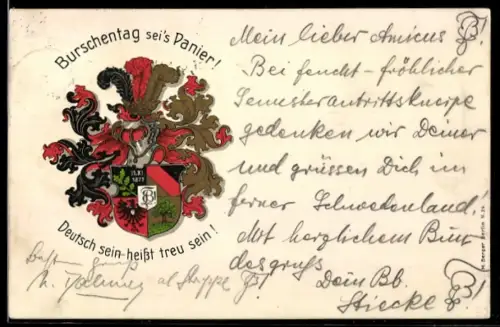 Burschentag sei's Panier!
11.XI
1877
Deutsch sein heißt treu sein!
Mein lieber Amicus
Bei feucht-fröhlicher
Semesterantrittskneipe
gedenken wir Deiner
und grüssen Dich im
ferner Schwedenland!
Mit herzlichem Bun
desgruß
Dein Bb.
gruß
al
H. Berger Berlin N.24